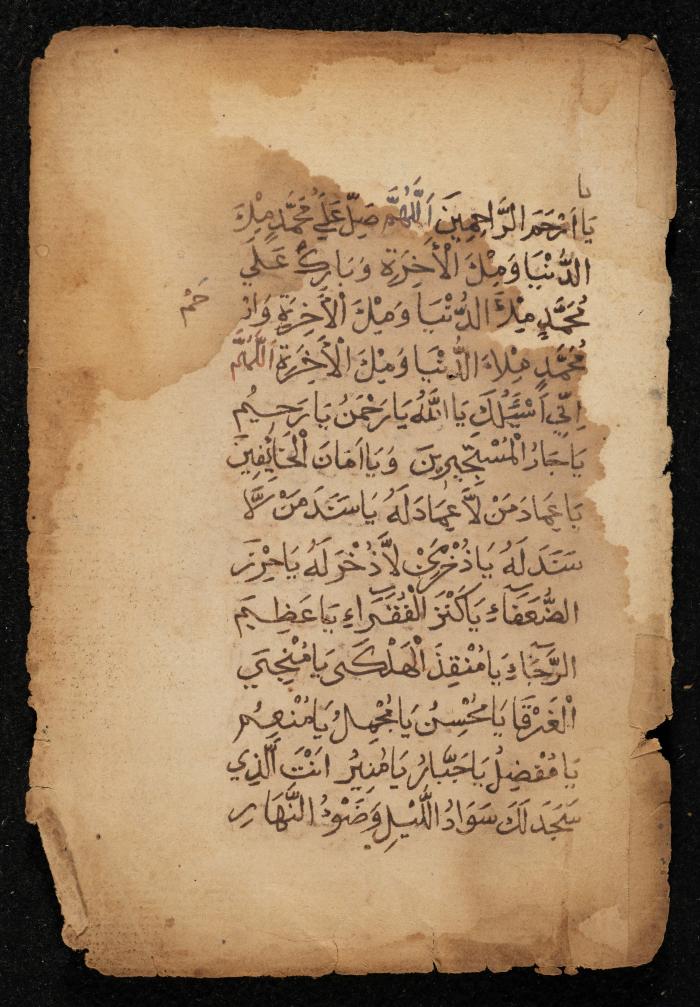 يا
يَا اَرْحَمَ الرَّاحِمِينَ اَللّٰهُمَّ صَلِّ عَلَي مُحَمَّدٍ مِلْءَ
الدُّنْيَا وَمِلْءَ الْأَخِرَةِ وَبَارِكْ عَلَي
مُحَمَّدٍ مِلْءَ الدُّنْيَا وَمِلْءَ الْأَخِرَةِ وَارْ
حَمْ
مُحَمَّدٍ مِلْاءَ الدُّنْيَا وَمِلْءَ الْأَخِرَةِ اَللّٰهُمَّ
اِنِّي اَسْئَلُكَ يَا اَللّٰهُ يَا رَحْمٰنُ يَا رَحِيمُ
يَا جَارُ الْمُسْتَجِيرِينَ وَيَا اَمَانَ الْخَائِفِينَ
يَا عِمَادَ مَنْ لَا عِمَادَ لَهُ يَا سَنَدَ مَنْ لَّا
سَنَدَ لَهُ يَا ذُخْرَ مَنْ لَّا ذُخْرَ لَهُ يَا حِرْزَ
الضُّعَفَآءِ يَا كَنْزَ الْفُقَرَاءِ يَا عَظِيمَ
الرَّجَآءِ يَا مُنْقِذَ الْهَلْكَى يَا مُنْجِيَ
الْغَرْقَا يَا مُحْسِنُ يَا مُجْمِلُ يَا مُنْعِمُ
يَا مُفْضِلُ يَا جَبَّارُ يَا مُنِيرُ اَنْتَ الَّذِي
سَجَدَ لَكَ سَوَادُ اللَّيْلِ وَضَوْءُ النَّهَارِ